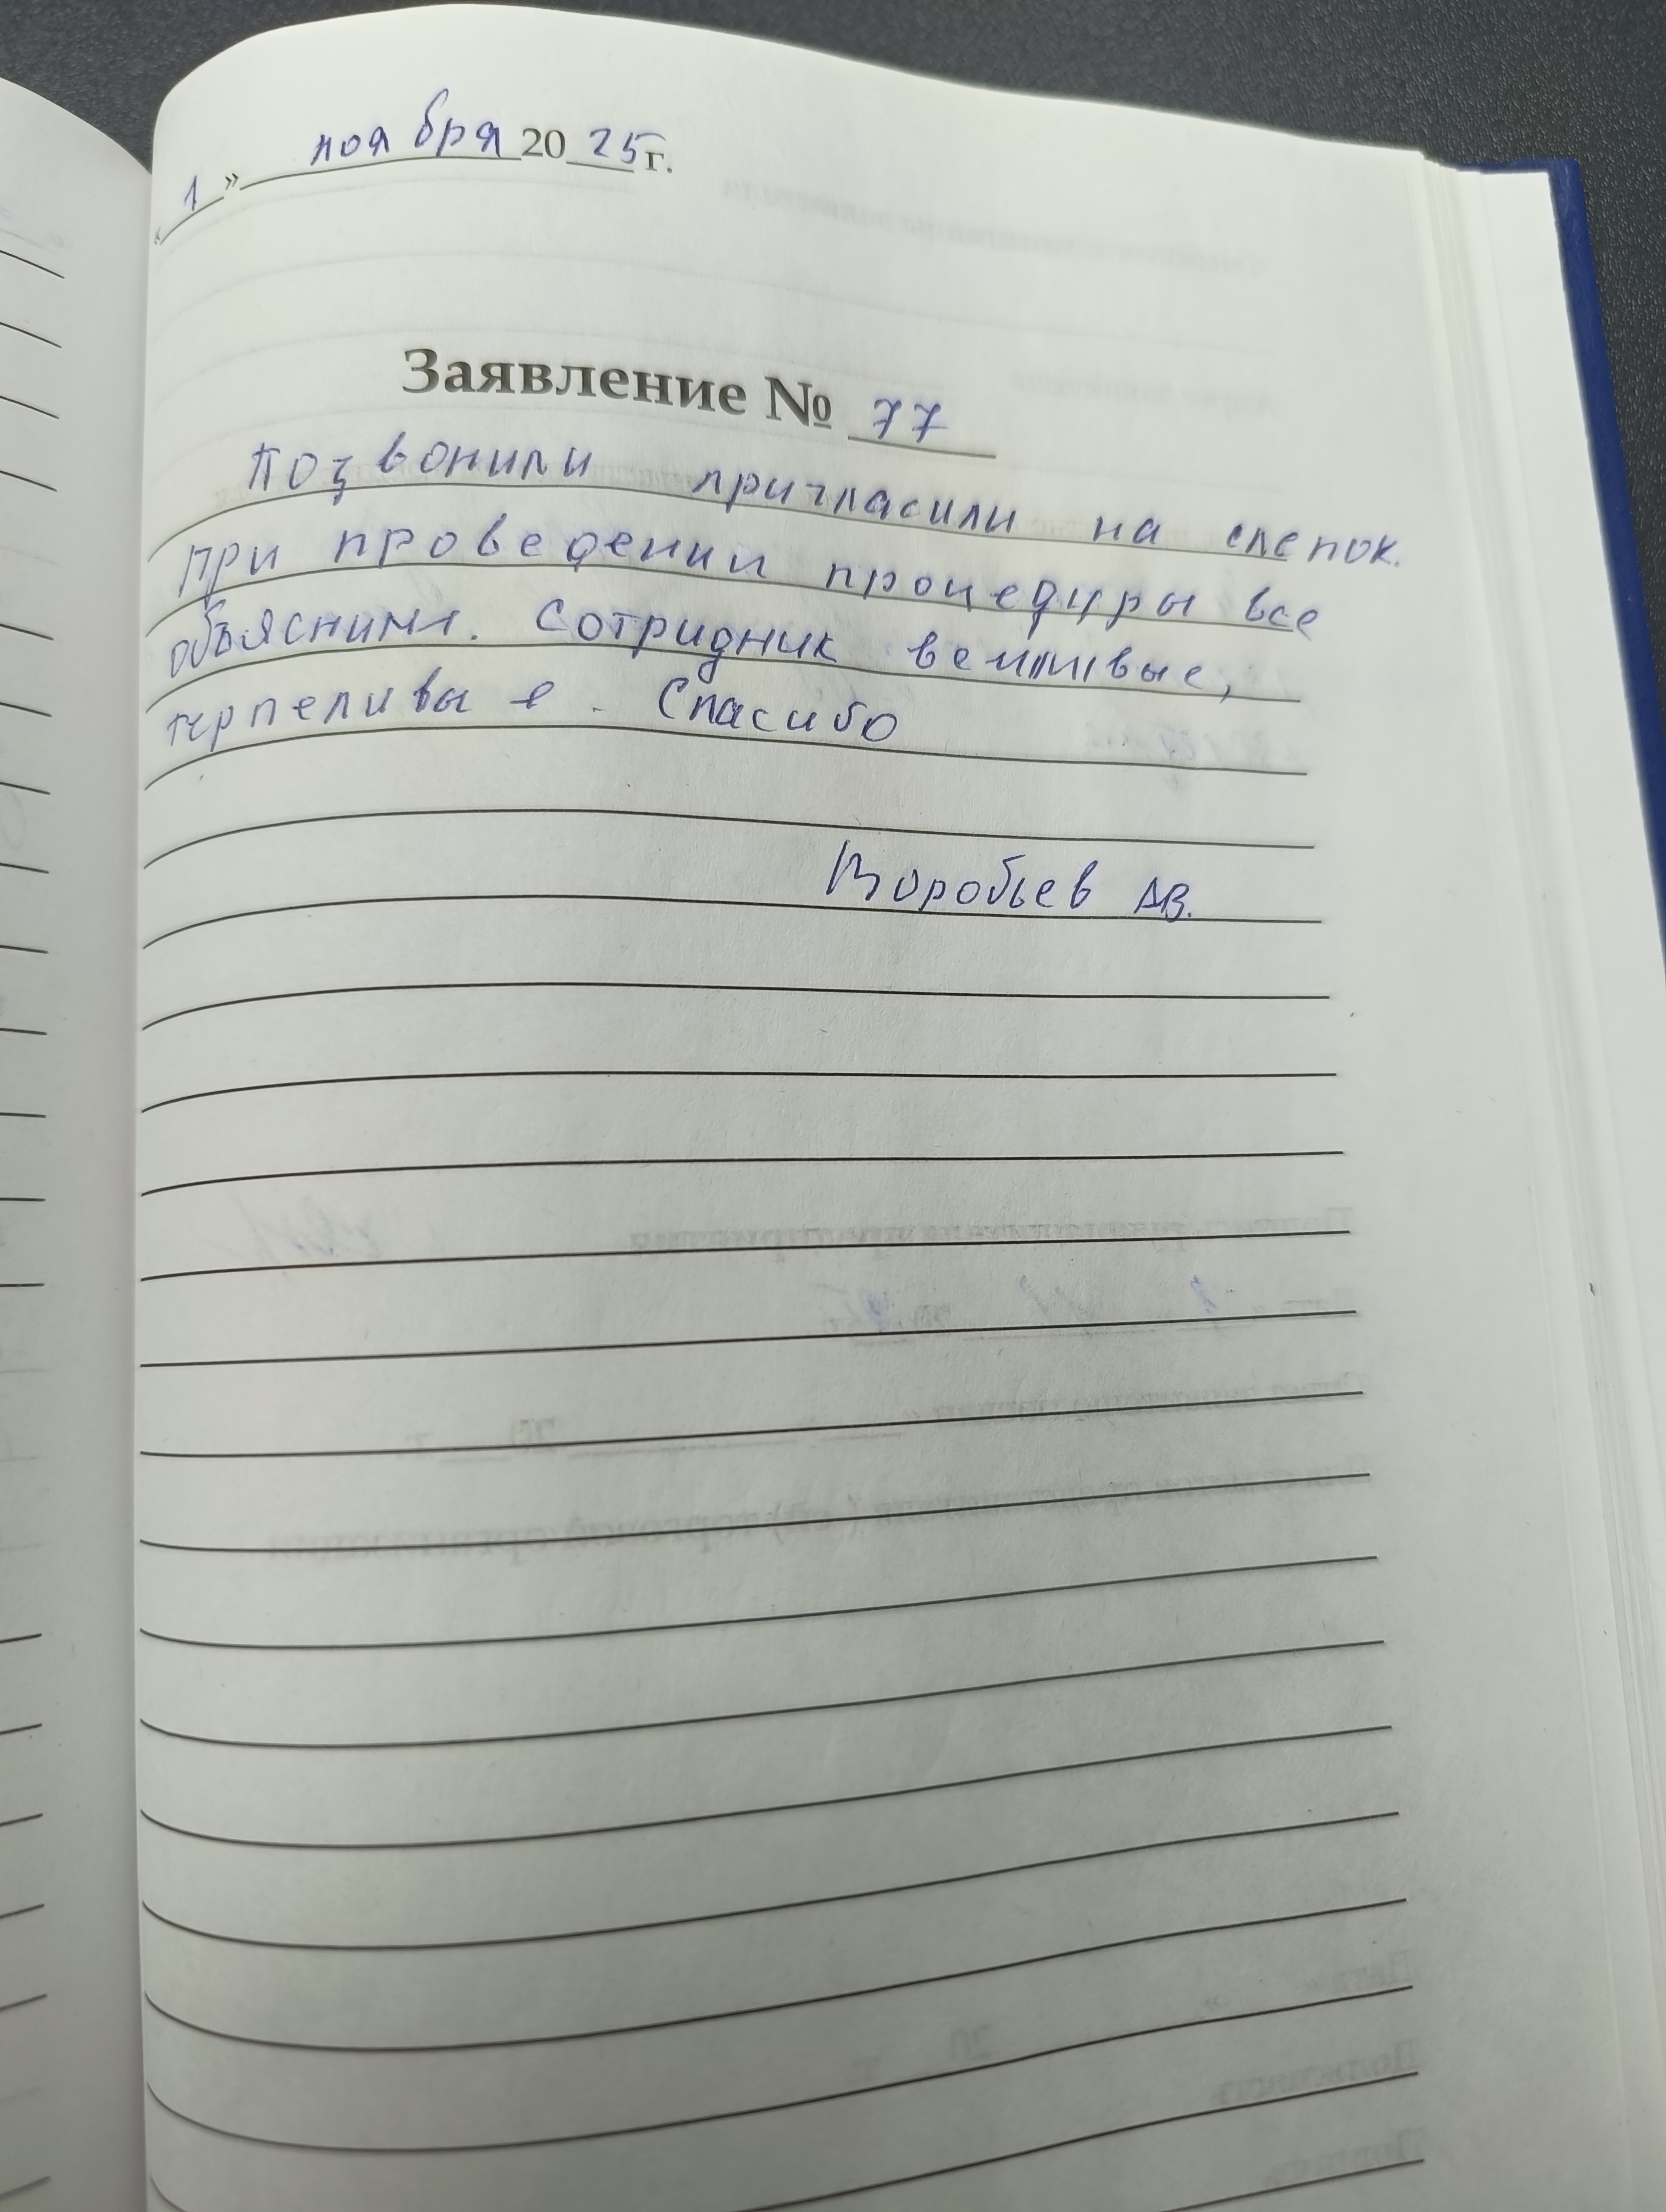 « 1 » ноября 2025 г.
Заявление № 77
Позвонили пригласили на слепок.
При проведении процедуры все
объяснили. Сотрудник вежливые,
терпеливые. Спасибо
Воробьев АВ.